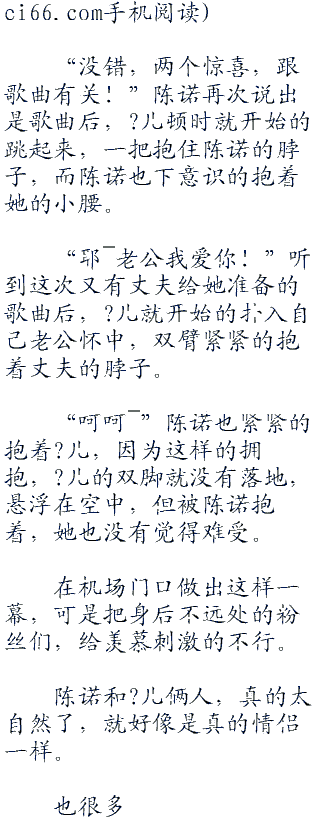 ci66.com手机阅读)
“没错，两个惊喜，跟
歌曲有关！”陈诺再次说出
是歌曲后，?儿顿时就开始的
跳起来，一把抱住陈诺的脖
子，而陈诺也下意识的抱着
她的小腰。
“耶¯老公我爱你！”听
到这次又有丈夫给她准备的
歌曲后，?儿就开始的扑入自
己老公怀中，双臂紧紧的抱
着丈夫的脖子。
“呵呵¯”陈诺也紧紧的
抱着?儿，因为这样的拥
抱，?儿的双脚就没有落地，
悬浮在空中，但被陈诺抱
着，她也没有觉得难受。
在机场门口做出这样一
幕，可是把身后不远处的粉
丝们，给羡慕刺激的不行。
陈诺和?儿俩人，真的太
自然了，就好像是真的情侣
一样。
也很多